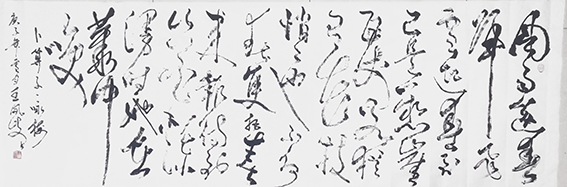 風雨送春
歸飛
雪迎春到
已是懸崖
百丈冰猶
有花枝
俏俏也不争
春隻把春
来報待到
山花烂
漫時她在
叢中
笑
卜算子咏梅
庚子年